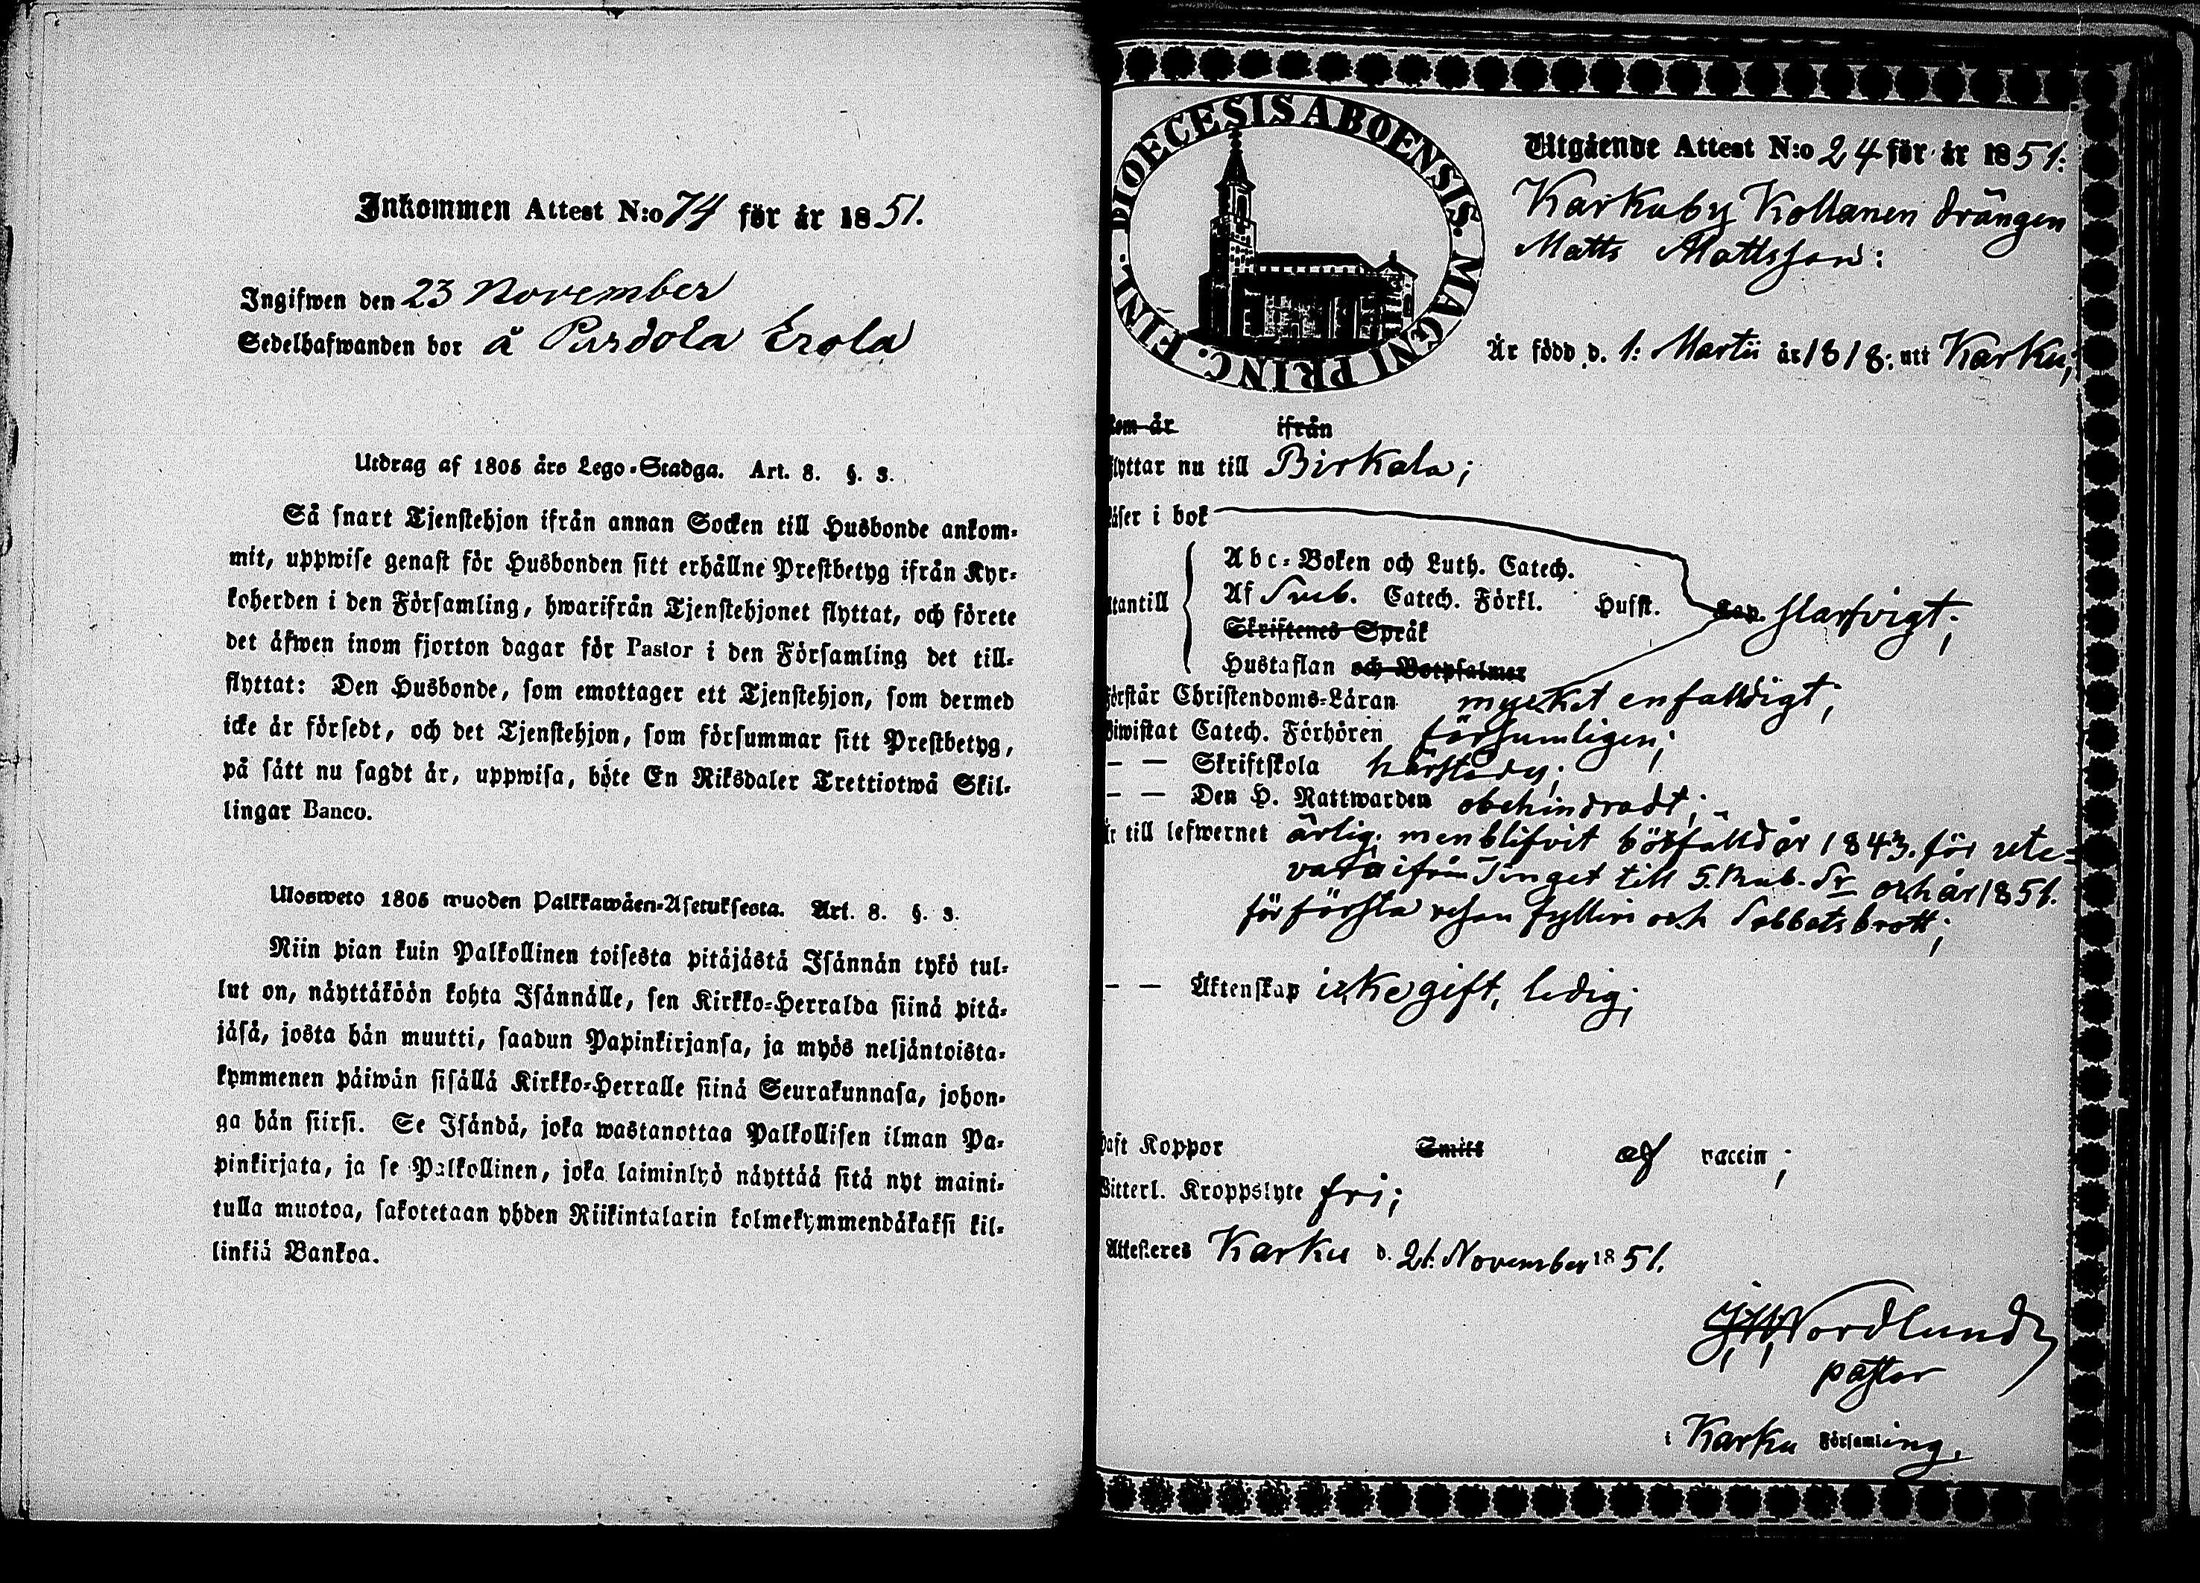 Inkommen Attest N:o 74 för år 1851.
Ingifwen den 23 November
Sedelhafwanden bor å Purdola Erola
Utdrag af 1805 års Lego-Stadga. Art. 8. §. 3.
Så snart Tjenstehjon ifrån annan Socken till Husbonde ankom-
mit, uppwise genast för Husbonden sitt erhållne Prestbetyg ifrån Kyr-
koherden i den Församling, hwarifrån Tjenstehjonet flyttat, och förete
det äfwen inom fjorton dagar för Pastor i den Församling det till-
flyttat: Den Husbonde, som emottager ett Tjenstehjon, som dermed
icke är försedt, och det Tjenstehjon, som försummar sitt Prestbetyg,
på sätt nu sagdt är, uppwisa, böte En Riksdaler Trettiotwå Skil-
lingar Banco.
Ulosweto 1805 wuoden Palkkawäen-Asetuksesta. Art. 8. §. 3.
Niin pian kuin Palkollinen toisesta pitäjästä Isännän tykö tul-
lut on, näyttäköön kohta Isännälle, sen Kirkko-Herralda siinä pitä-
jäsä, josta hän muutti, saadun Papinkirjansa, ja myös neljäntoista-
kymmenen päiwän sisällä Kirkko-Herralle siinä Seurakunnasa, johon-
ga hän siirsi. Se Isändä, joka wastanottaa Palkollisen ilman Pa-
pinkirjata, ja se Palkollinen, joka laiminlyö näyttää sitä nyt maini-
tulla muotoa, sakotetaan yhden Riikintalarin kolmekymmendäkaksi kil-
linkiä Bankoa.
DIOECESIS ABOENSIS. MAGNI PRINC. FINL.
Utgående Attest N:o 24 för år 1851:
Karkuby Kollanen drängen
Matts Mattsson:
Är född d. 1: Martii år 1818: uti Karku;
kom år ifrån
flyttar nu till Birkala;
läser i bok
Abc-Boken och Luth. Catech.
utantill Af Sveb. Catech. Förkl. Husst. Cap. slarfvigt;
Skriftenes Språk
Hustaflan och Botpsalmer
Förstår Christendoms-Läran mycket enfalldigt;
Biwistat Catech. Förhören försumligen;
— — Skriftskola härstädes;
— — Den H. Nattwarden obehindradt;
Är till lefwernet ärlig, men blifvit bötfälld år 1843. för ute-
vara ifrån Tinget till 5. Rub. Sr och år 1851.
för första resan fylleri och Sabbatsbrott;
— — Äktenskap icke gift, ledig;
Haft Koppor Smitt af vaccin;
Witterl. Kroppslyte fri;
Attesteres Karku d. 21. November 1851.
Nordlund
pastor
i Karku Församling.